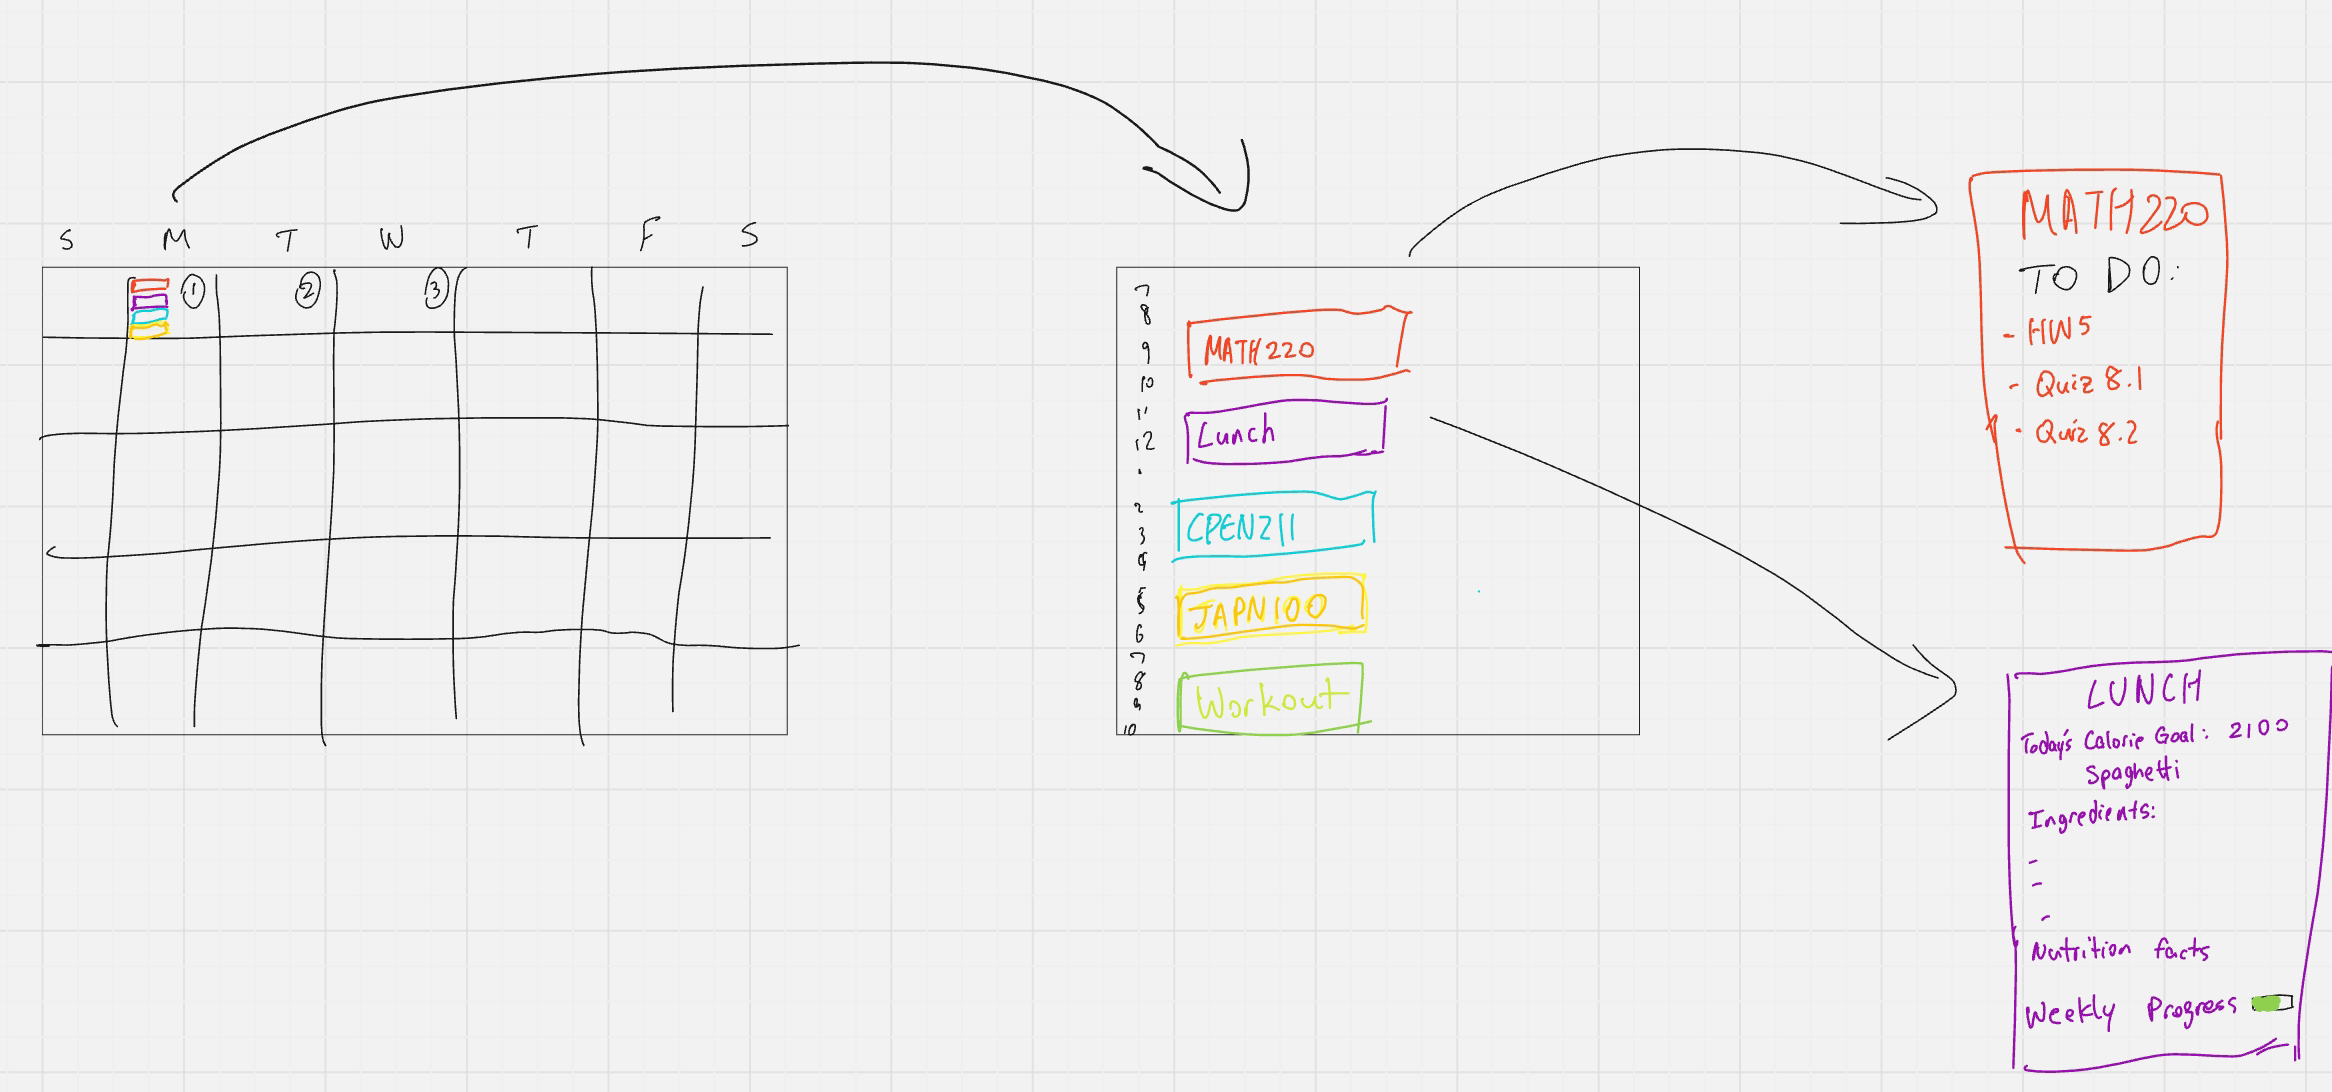 S M T W T F S
1 2 3
7
8
9
10
11
12
2
3
4
5
6
7
8
9
10
MATH220
Lunch
CPEN211
JAPN100
Workout
MATH220
TO DO:
- HW5
- Quiz 8.1
- Quiz 8.2
LUNCH
Today's Calorie Goal: 2100
Spaghetti
Ingredients:
-
-
-
Nutrition facts
Weekly Progress